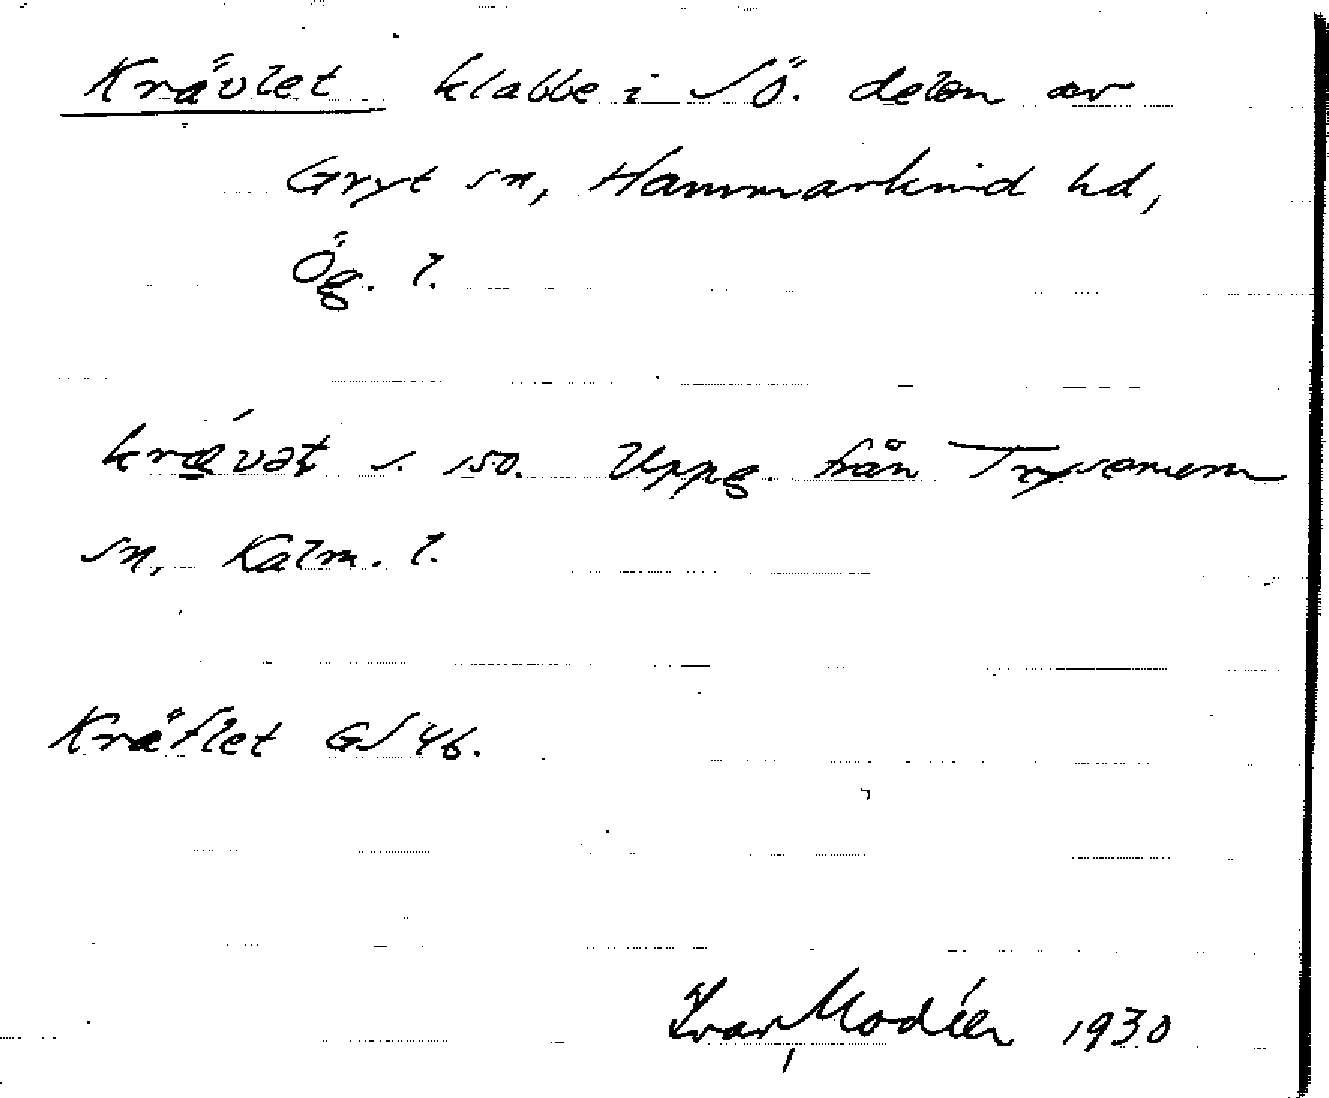 Krävlet klabbe i SÖ. delen av
Gryt sn, Hammarkind hd,
Ög. l.
krævət s. 150. Uppg. från Tryserum
sn, Kalm. l.
Kräflet GS 46.
Ivar Modéer 1930